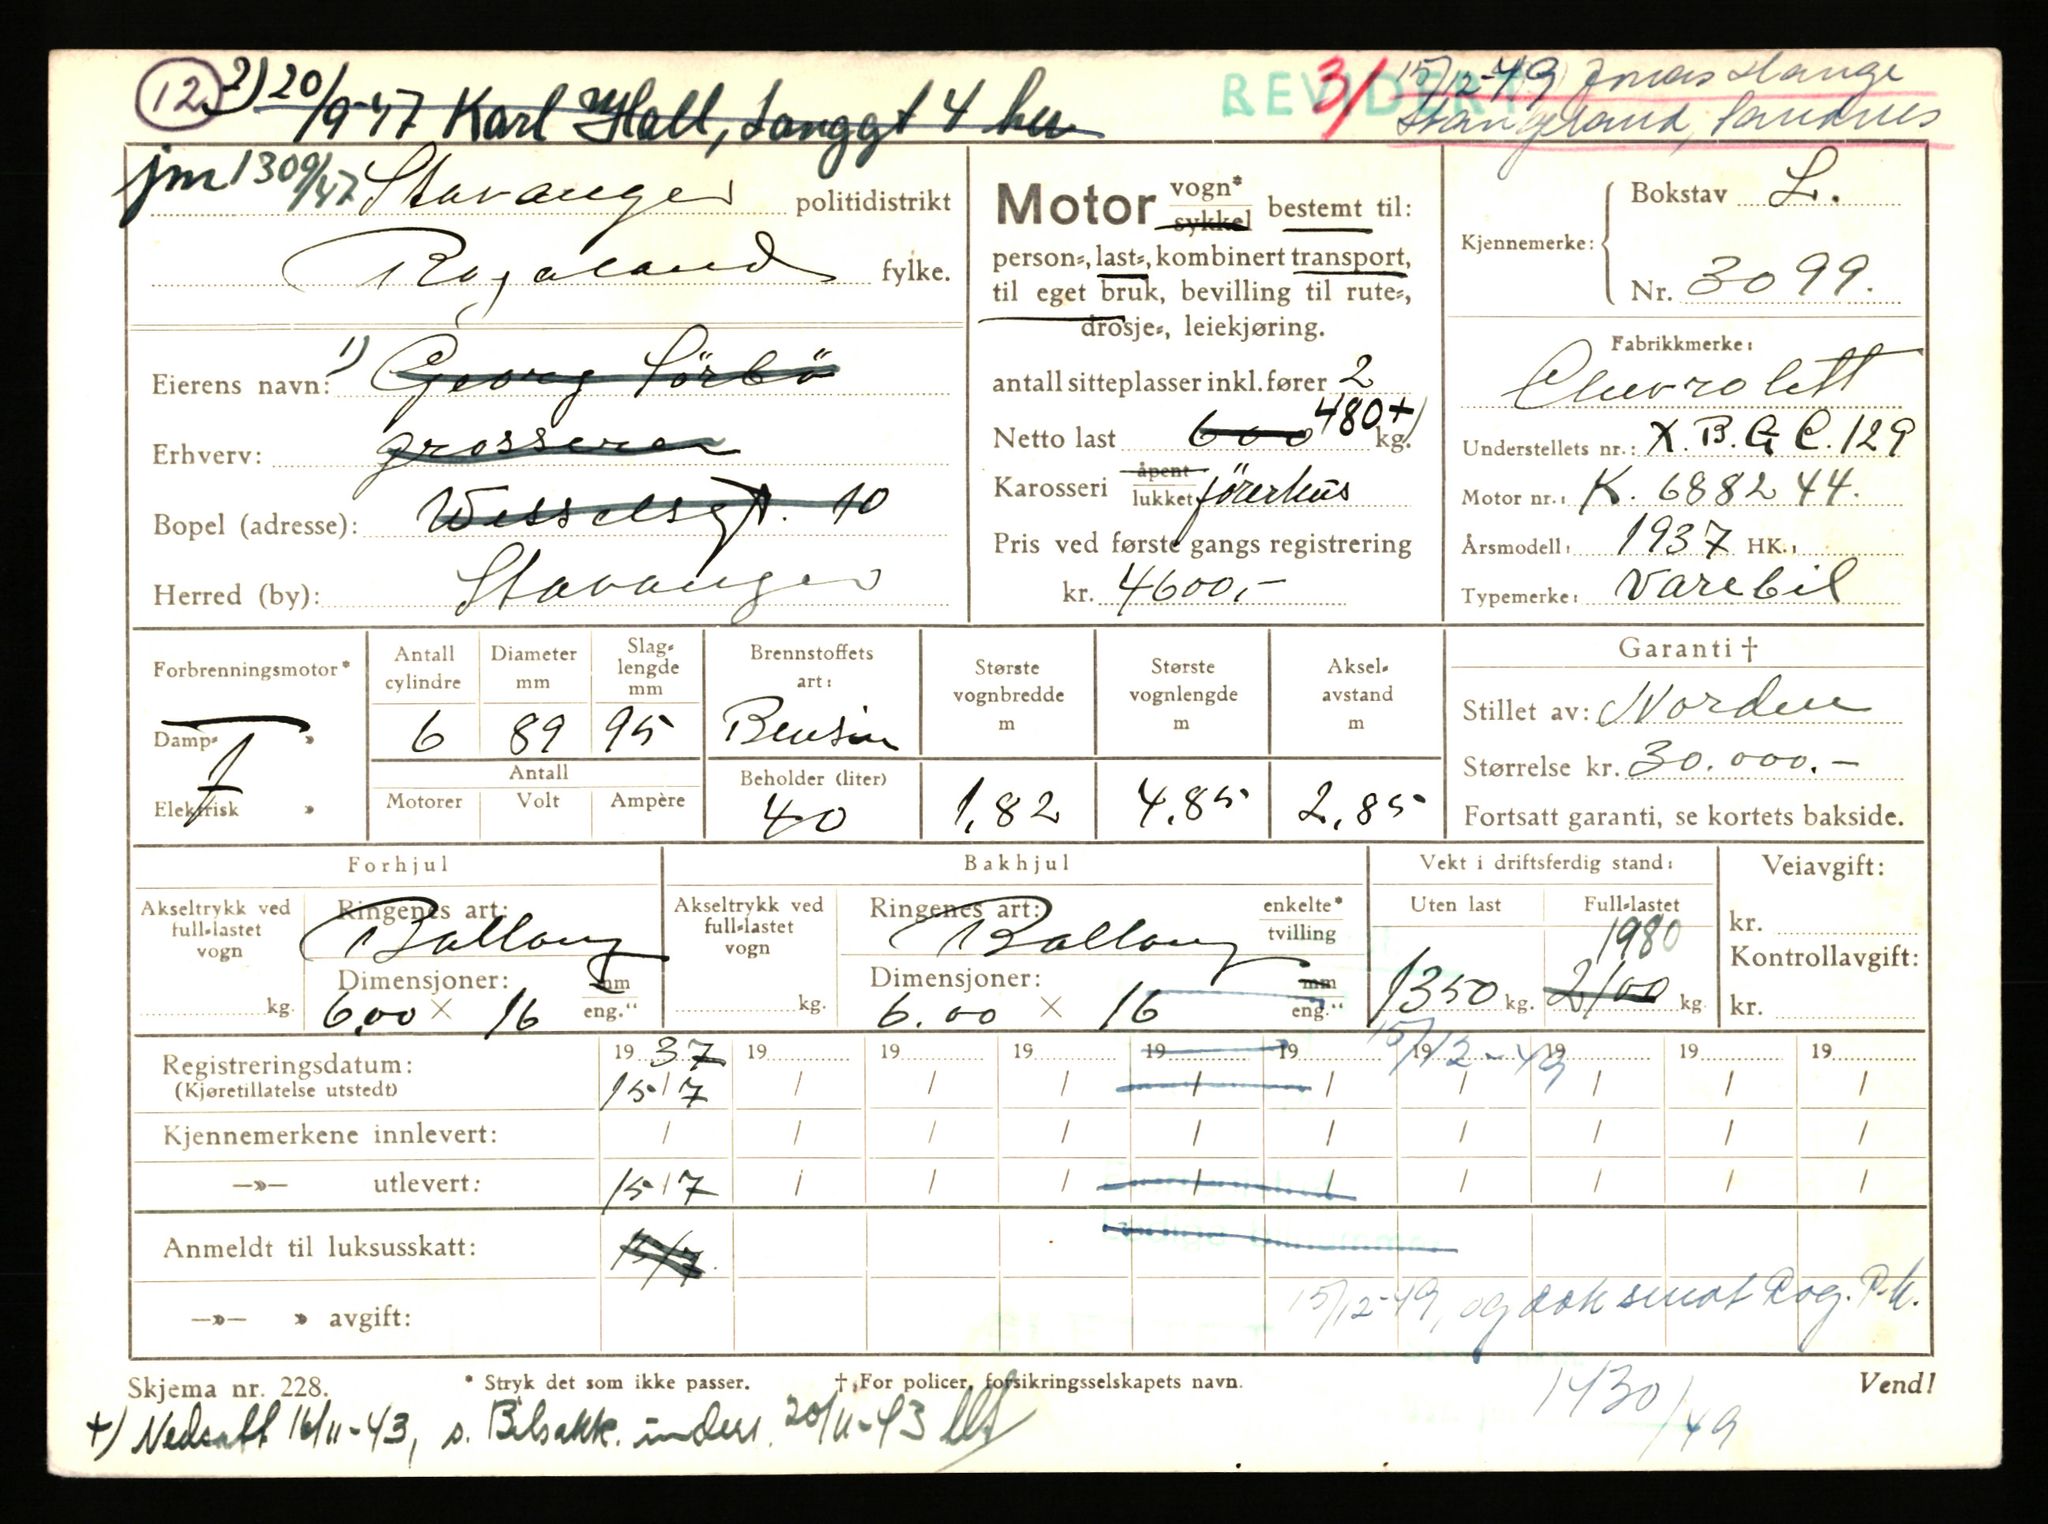 12
2) 20/9-47 Karl Hall, Langgt 4 her
REVIDERT
3/ 15/12-49 Jonas Stange
Stangeland, Sandnes
jm 1309/47
Stavanger politidistrikt
Rogaland fylke.
Eierens navn: 1) Georg Sörbö
Erhverv: grosserer
Bopel (adresse): Wesselsgt. 10
Herred (by): Stavanger
Motor vogn* sykkel bestemt til:
person-, last-, kombinert transport,
til eget bruk, bevilling til rute-,
drosje-, leiekjøring.
antall sitteplasser inkl. fører 2
Netto last 600 480 +) kg.
Karosseri åpent lukket förerhus
Pris ved første gangs registrering
kr. 4600,-
Kjennemerke: Bokstav L.
Nr. 3099.
Fabrikkmerke:
Chevrolett
Understellets nr.: X.B.G.C.129
Motor nr.: K. 688244.
Årsmodell: 1937 HK.:
Typemerke: Varebil
Forbrenningsmotor*
Damp- »
Elektrisk »
Antall cylindre 6
Diameter mm 89
Slag-lengde mm 95
Antall
Motorer Volt Ampère
Brennstoffets art: Bensin
Beholder (liter) 40
Største vognbredde m 1,82
Største vognlengde m 4,85
Aksel-avstand m 2,85
Garanti †
Stillet av: Norden
Størrelse kr. 30.000.-
Fortsatt garanti, se kortets bakside.
Forhjul
Akseltrykk ved full-lastet vogn kg.
Ringenes art: Ballong
Dimensjoner: mm
6.00 × 16 eng."
Bakhjul
Akseltrykk ved full-lastet vogn kg.
Ringenes art: Ballong enkelte* tvilling
Dimensjoner: mm
6.00 × 16 eng."
Vekt i driftsferdig stand:
Uten last 1350 kg.
Full-lastet 1980 2100 kg.
Veiavgift:
kr.
Kontrollavgift:
kr.
Registreringsdatum: 19 37 19 19 19 19 19 19 19 19 19
15/12-49
(Kjøretillatelse utstedt) 15/7 / / / / / / / / /
Kjennemerkene innlevert: / / / / / / / / / /
—»— utlevert: 15/7 / / / / / / / / /
Anmeldt til luksusskatt: 15/7
—»— » avgift: 15/12-49, og dok sendt Rog. P.k.
1430/49
Skjema nr. 228. * Stryk det som ikke passer. † For policer, forsikringsselskapets navn. Vend!
+) Nedsatt 16/11-43, s. Bilsakk. inders. 20/11-43